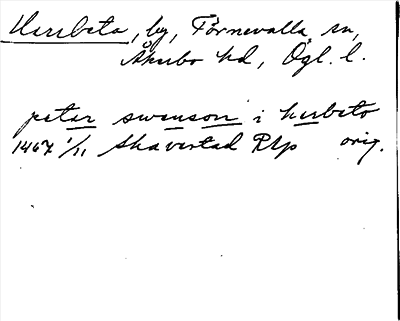 Herrbeta, by, Törnevalla sn,
Åkerbo hd, Ögl. l.
petar swenson i herbeto
1467 1/11 Skavestad RAp orig.